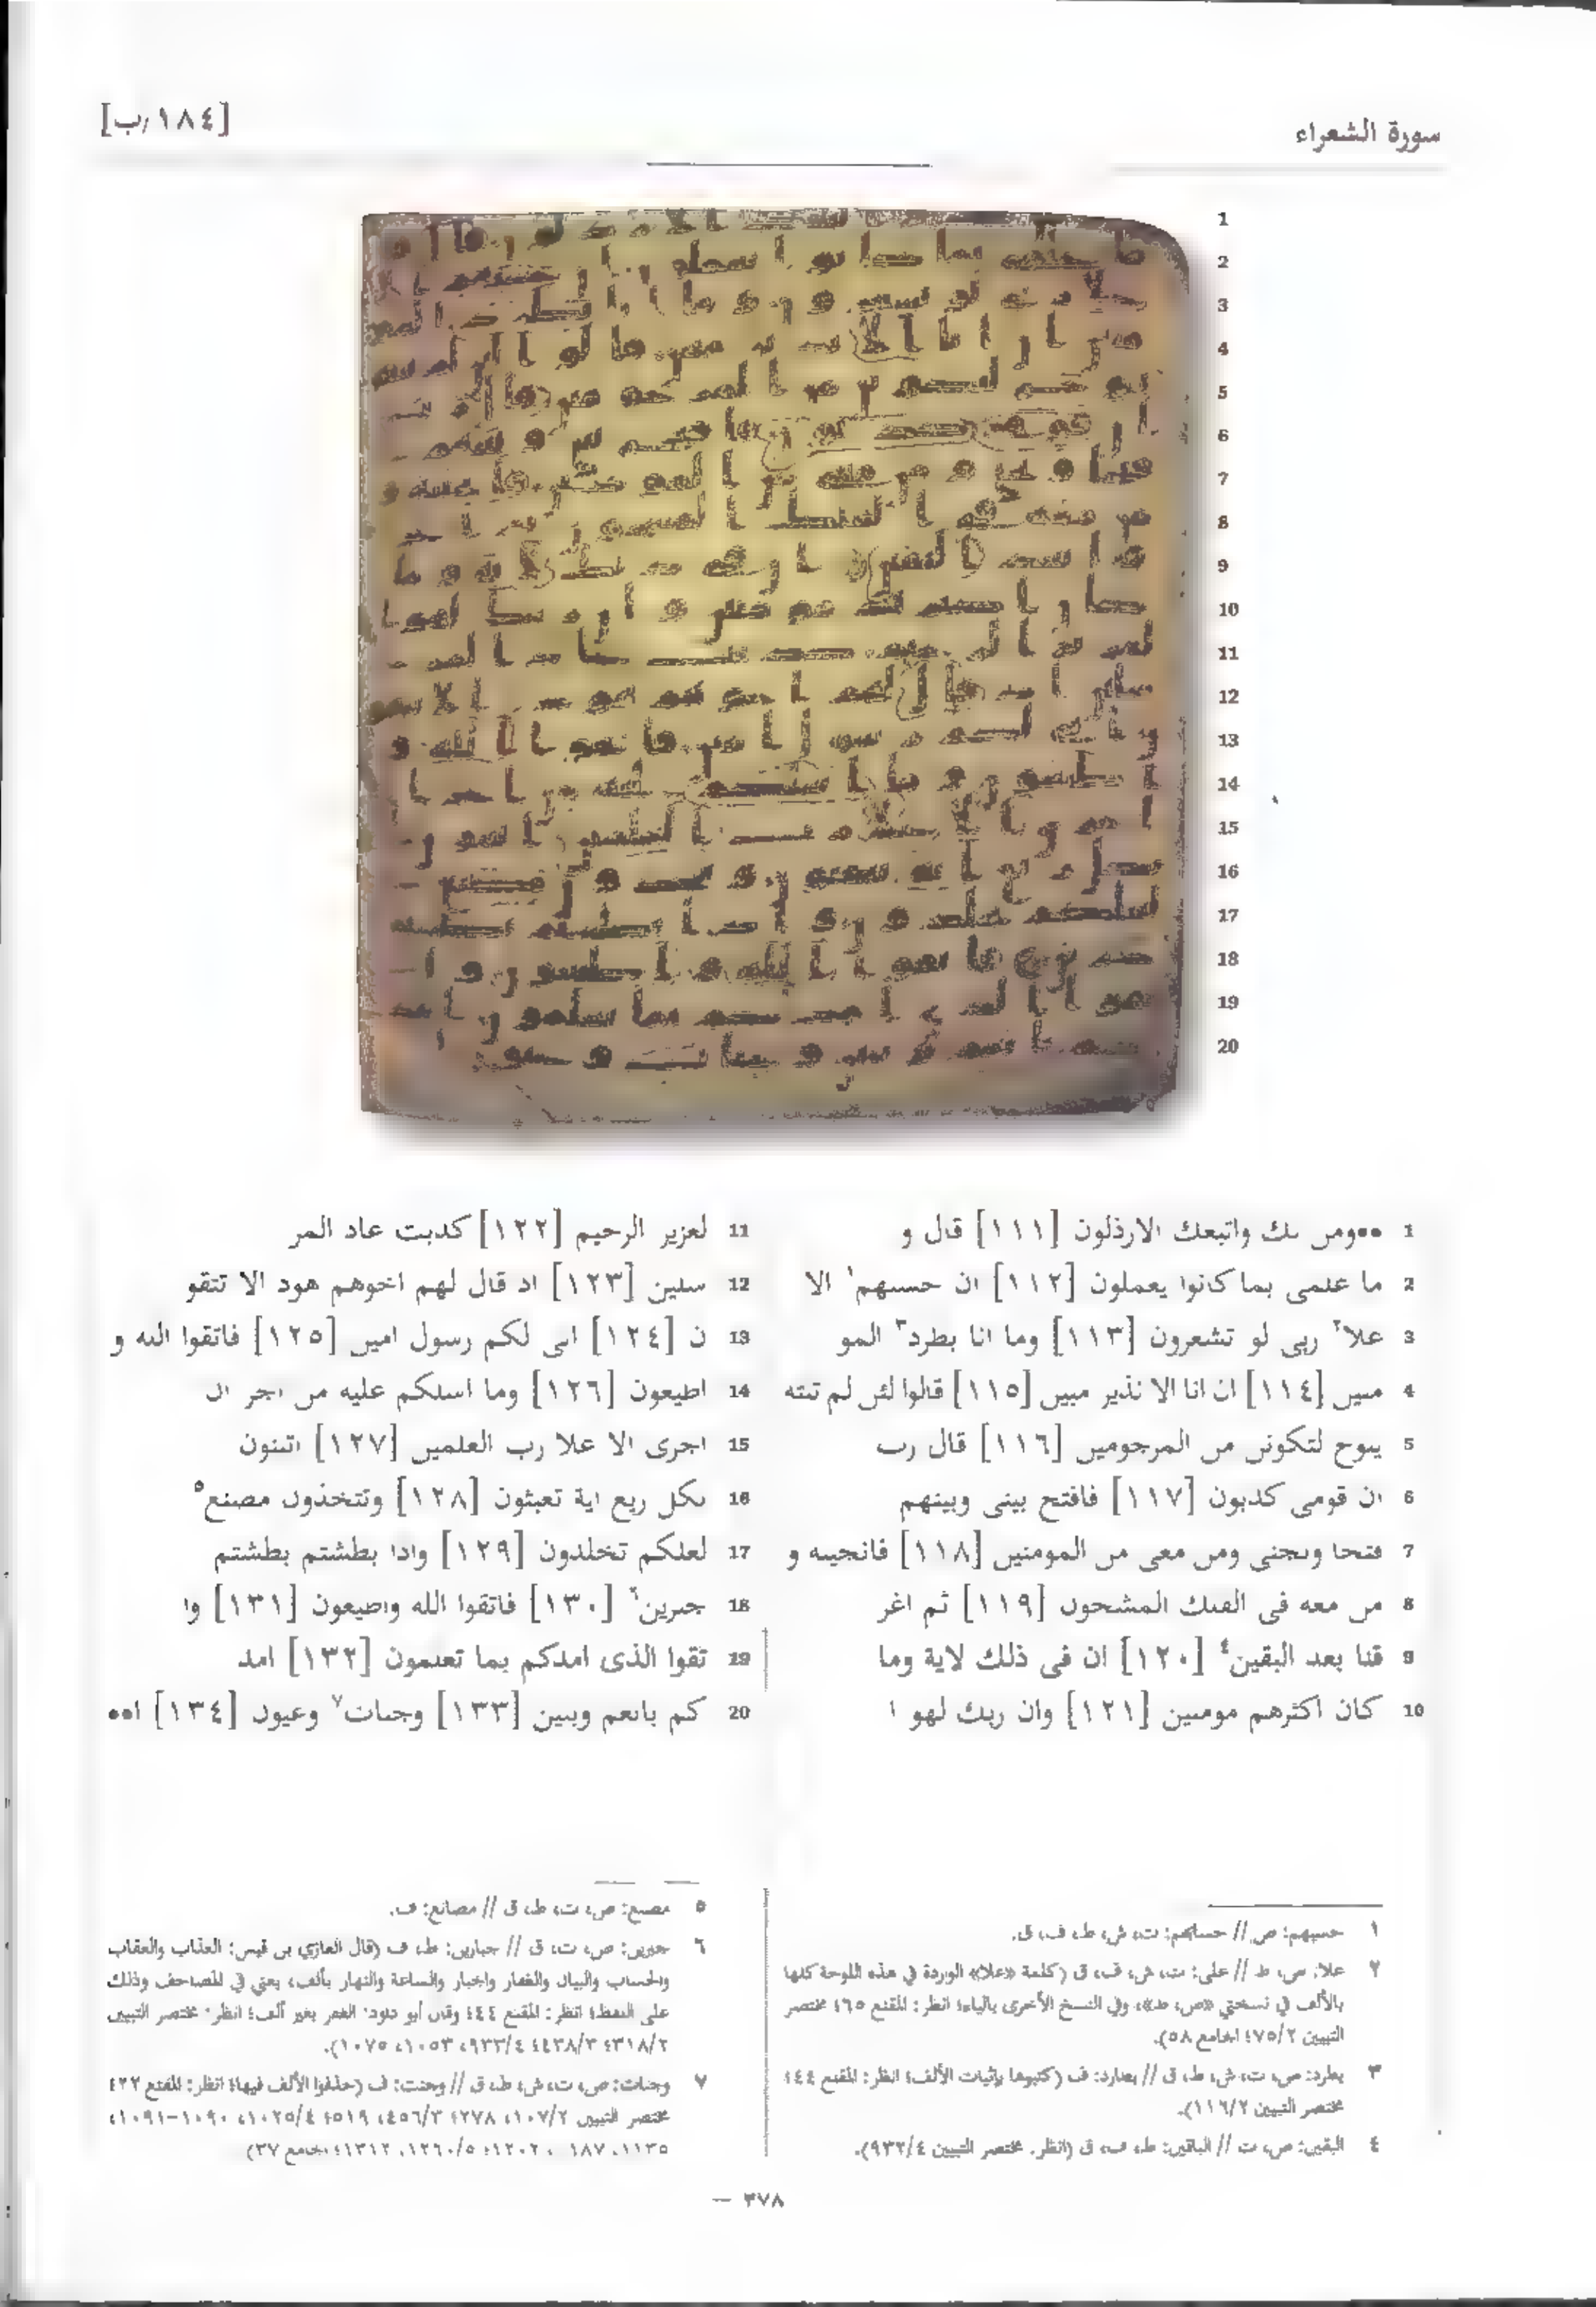 سورة الشعراء
[١٨٤/ب]
1 ••ومں ںك واتبعك الارذلون [١١١] قال و
2 ما علمى بما كانوا يعملون [١١٢] ان حسبهم١ الا
3 علا٢ ربى لو تشعرون [١١٣] وما انا بطرد٣ المو
4 منيں [١١٤] ان انا الا نذير مبيں [١١٥] قالوا لئں لم تنته
5 ينوح لتكونں مں المرجوميں [١١٦] قال رب
6 ان قومى كذبون [١١٧] فافتح بينى وبينهم
7 فتحا ونجنى ومں معى مں المومنيں [١١٨] فانجينه و
8 مں معه فى الفلك المشحون [١١٩] ثم اغر
9 قنا بعد البقين٤ [١٢٠] ان فى ذلك لاية وما
10 كان اكثرهم مومنين [١٢١] وان ربك لهو ا
11 لعزير الرحيم [١٢٢] كذبت عاد المر
12 سلين [١٢٣] اد قال لهم اخوهم هود الا تتقو
13 ن [١٢٤] انى لكم رسول امين [١٢٥] فاتقوا الله و
14 اطيعون [١٢٦] وما اسلكم عليه مں اجر ان
15 اجرى الا علا رب العلميں [١٢٧] اتبنون
16 بكل ريع اية تعبثون [١٢٨] وتتخذون مصنع٥
17 لعلكم تخلدون [١٢٩] وادا بطشتم بطشتم
18 جبرين٦ [١٣٠] فاتقوا الله واطيعون [١٣١] وا
19 تقوا الذى امدكم بما تعلمون [١٣٢] امد
20 كم بانعم وبنين [١٣٣] وجنات٧ وعيون [١٣٤] ا••
١ حسبهم: ص // حسابهم: ت، ش، ط، ف، ق.
٢ علا: ص، ط // على: ت، ش، ف، ق (كلمة «علا» الواردة في هذه اللوحة كلها
بالألف في نسختي «ص، ط»، وفي النسخ الأخرى بالياء؛ انظر: المقنع ٦٥؛ مختصر
التبيين ٧٥/٢؛ الجامع ٥٨).
٣ بطرد: ص، ت، ش، ط، ق // بطارد: ف (كتبوها بإثبات الألف؛ انظر: المقنع ٤٤؛
مختصر التبيين ١١٦/٢).
٤ البقين: ص، ت // الباقين: ط، ف، ق (انظر: مختصر التبيين ٩٣٢/٤).
٥ مصنع: ص، ت، ط، ق // مصانع: ف.
٦ جبرين: ص، ت، ق // جبارين: ط، ف (قال الغازي بن قيس: العذاب والعقاب
والحساب والبيان والغفار والجبار والساعة والنهار بألف، يعني في المصاحف وذلك
على اللفظ؛ انظر: المقنع ٤٤؛ وقال أبو داود: الغفر بغير ألف؛ انظر: مختصر التبيين
٣١٨/٢؛ ٤٣٨/٣؛ ٩٣٣/٤، ١٠٥٣، ١٠٧٥).
٧ وجنات: ص، ت، ش، ط، ق // وجنت: ف (حذفوا الألف فيها؛ انظر: المقنع ٢٢؛
مختصر التبيين ١٠٧/٢، ٢٧٨؛ ٤٥٦/٣، ٥١٩؛ ١٠٢٥/٤، ١٠٩٠-١٠٩١،
١١٣٥، ١٢٠٢؛ ١٢٦٠/٥، ١٣١٢؛ الجامع ٣٧)
٣٧٨ —